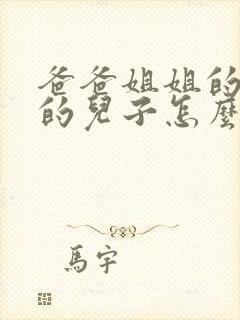 爸爸姐姐的
的兒子怎麼
馬宇